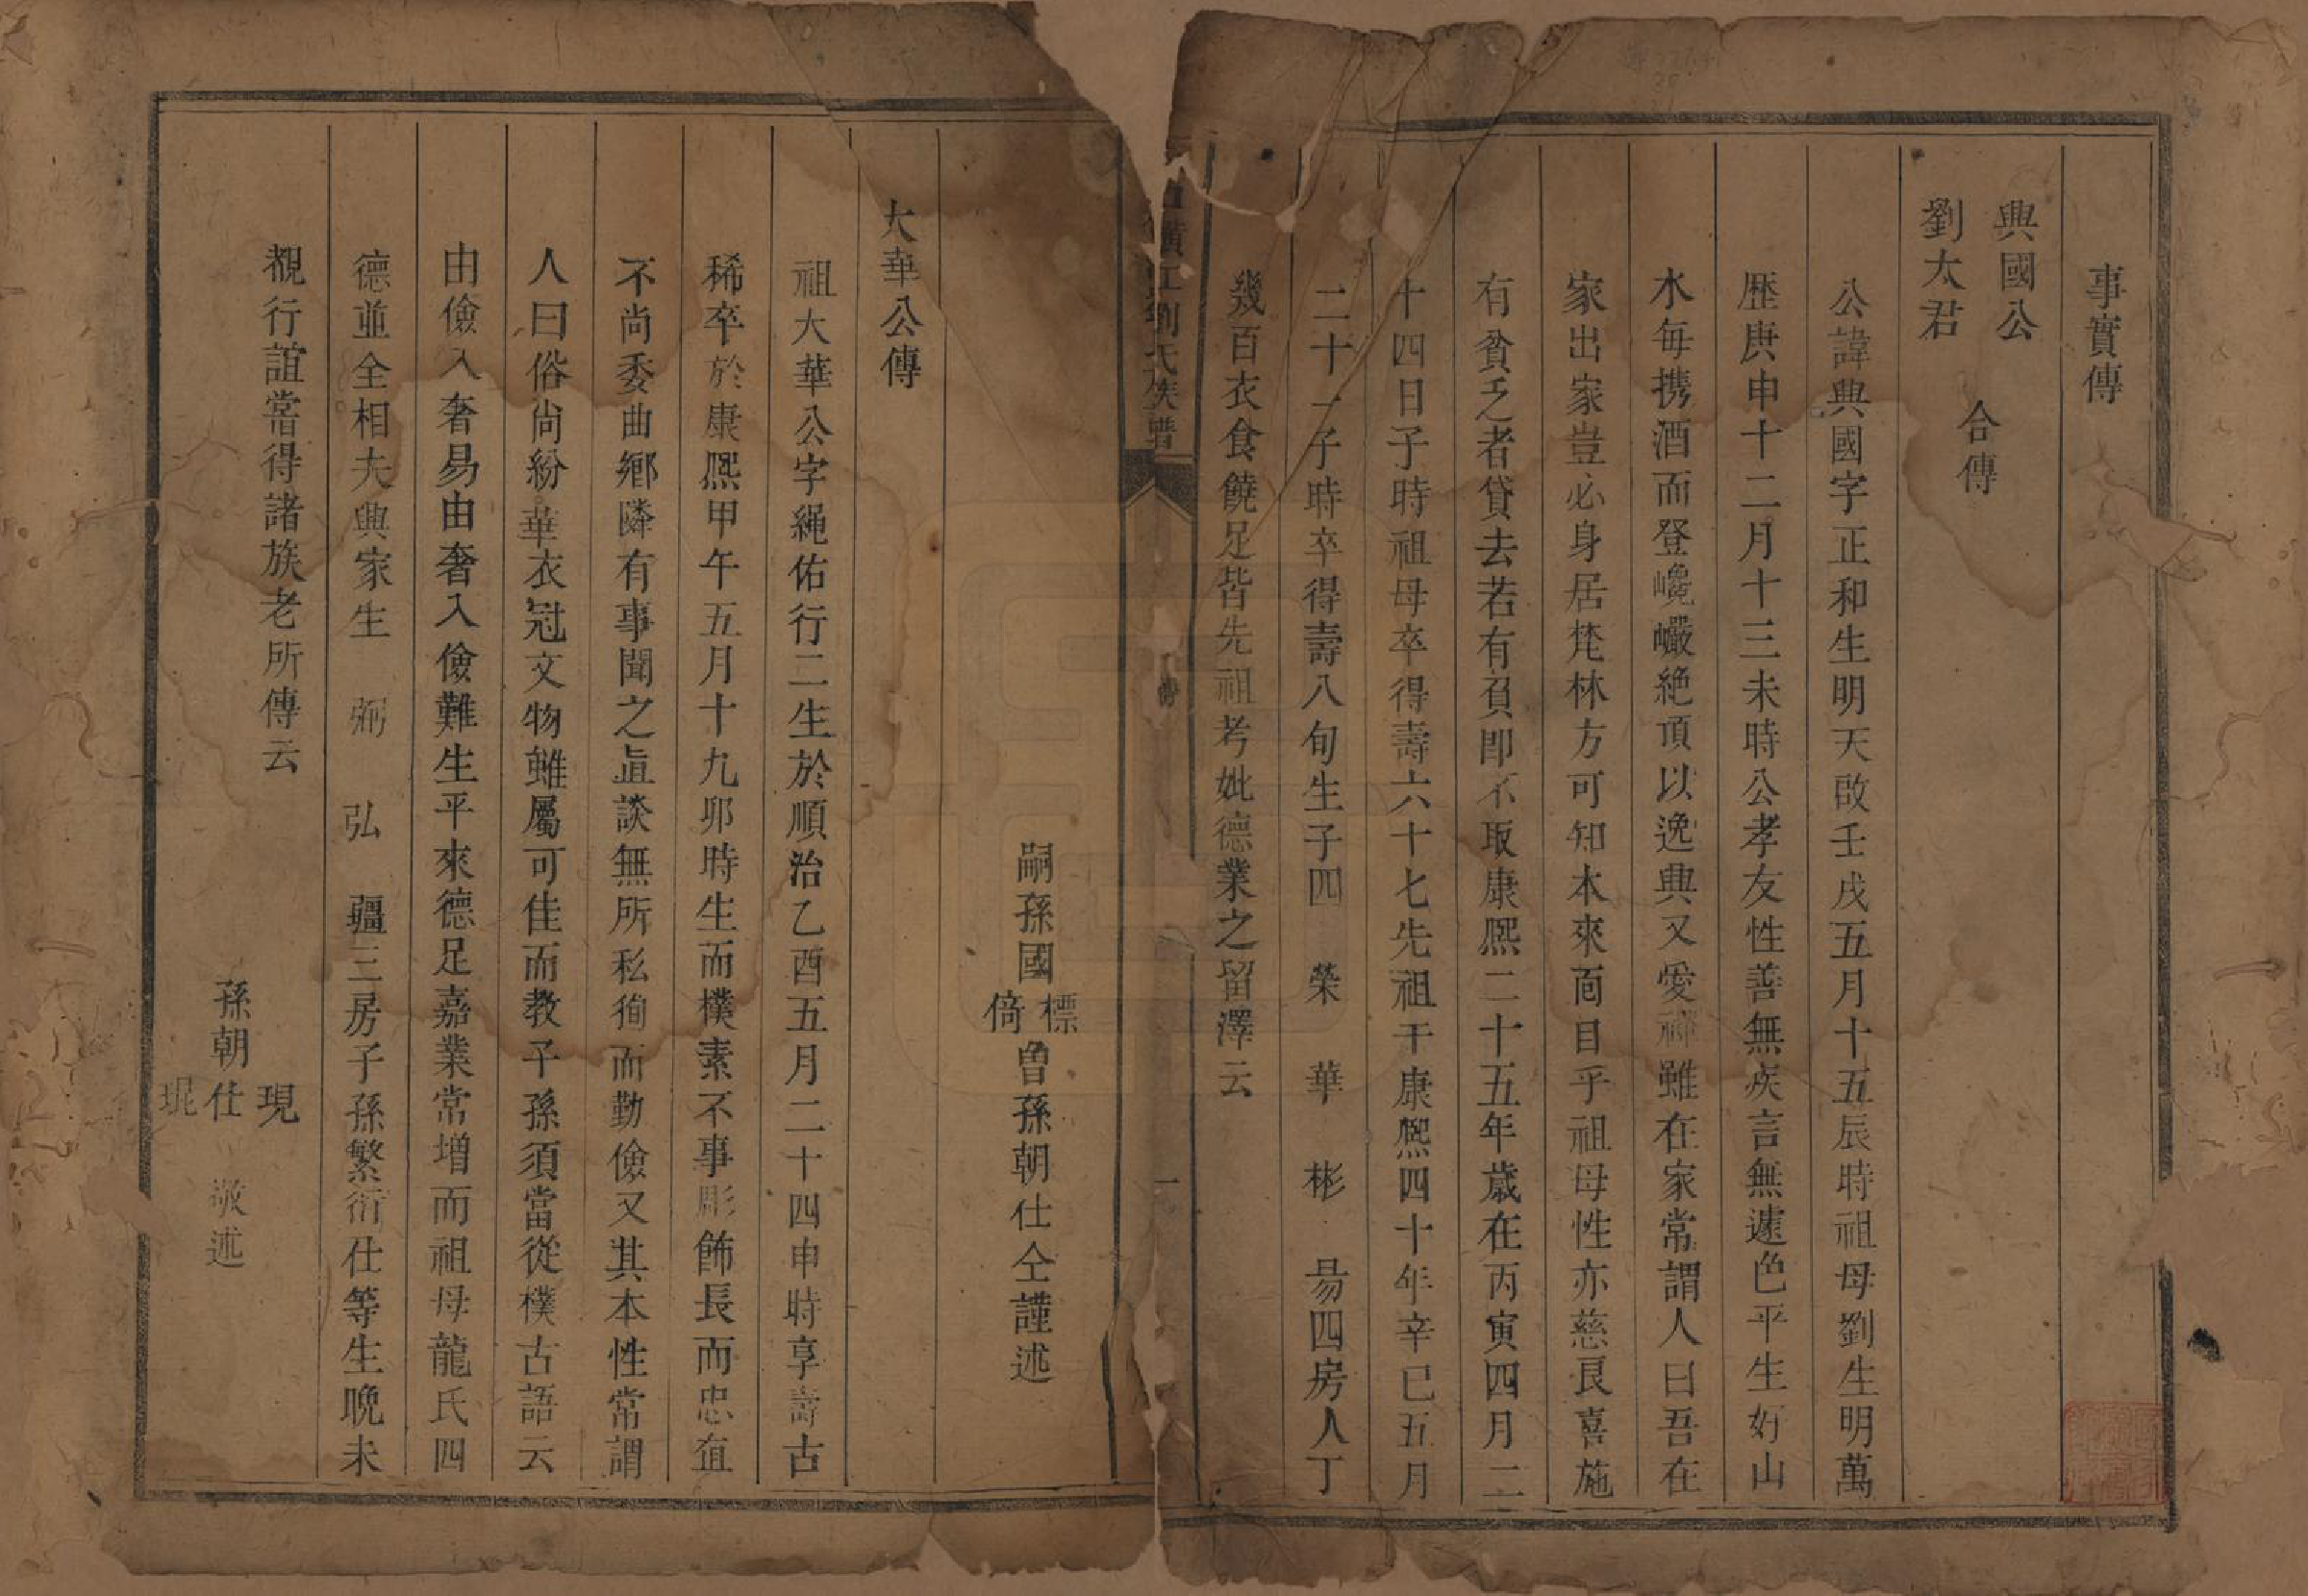 事實傳
興國公
劉太君
合傳
公諱興國字正和生明天啟壬戌五月十五辰時祖母劉生明萬
歷庚申十二月十三未時公孝友性善無疾言無遽色平生好山
水每携酒而登巉巗絶頂以逸興又愛禪雖在家常謂人曰吾在
家出家豈必身居梵林方可知本來靣目乎祖母性亦慈良喜施
有貧乏者貸去若有負即不取康熙二十五年歲在丙寅四月二
十四日子時祖母卒得壽六十七先祖于康熙四十年辛巳五月
二十一子時卒得壽八旬生子四 榮 華 彬 昜四房人丁
幾百衣食饒足皆先祖考妣德業之留澤云
江劉氏族譜
傳
一
嗣孫國標倚曾孫朝仕仝謹述
大華公傳
祖大華公字繩佑行二生於順治乙酉五月二十四申時享壽古
稀卒於康熙甲午五月十九卯時生而樸素不事彫飾長而忠直
不尚委曲鄉隣有事聞之直談無所私徇而勤儉又其本性常謂
人曰俗尚紛華衣冠文物雖屬可佳而教子孫須當從樸古語云
由儉入奢易由奢入儉難生平來德足嘉業常增而祖母龍氏四
德並全相夫興家生 弼 弘 疆三房子孫繁衍仕等生晚未
覩行誼常得諸族老所傳云
孫朝現仕琨 敬述